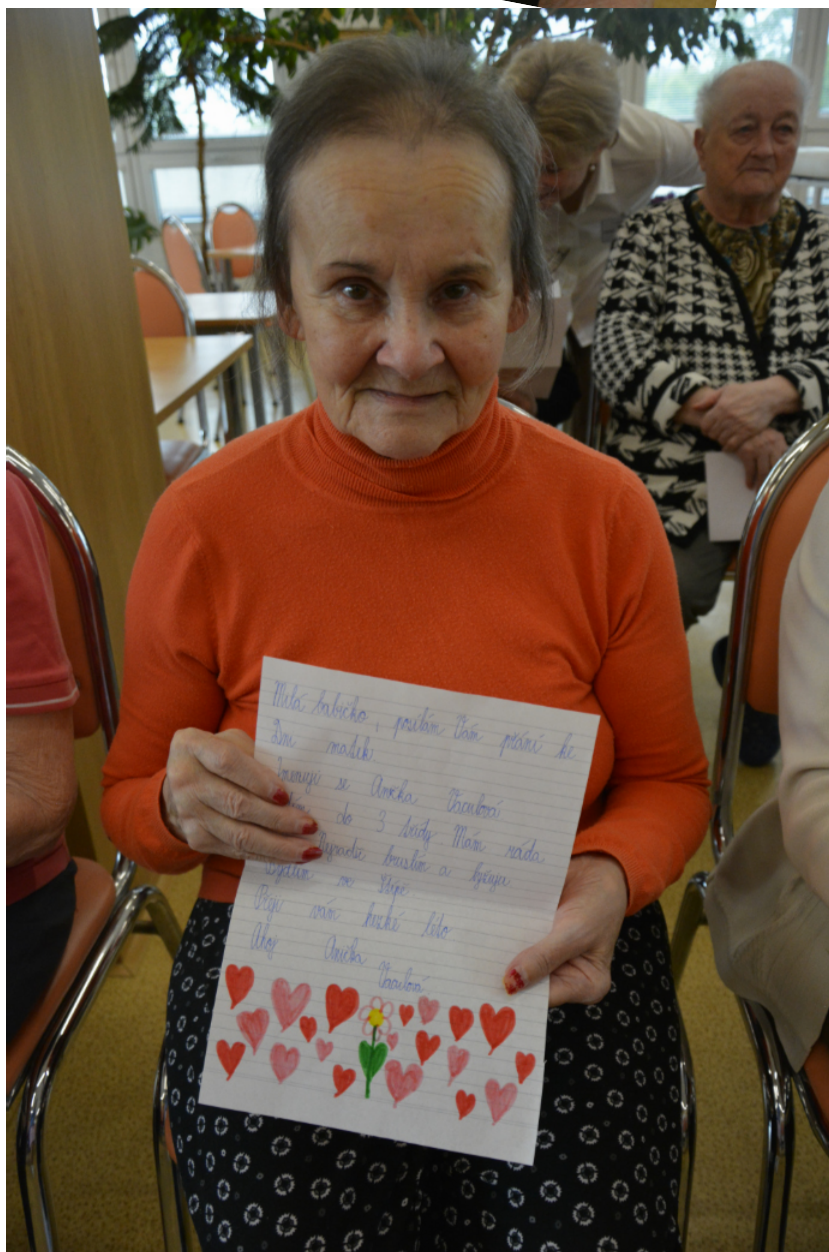 Milá babičko, posílám Vám přání ke
Dni matek
Jmenuji se Anička Vaculová
do 3 třídy Mám ráda
bruslím a lyžuju
Bydlím ve Štípě
Přeju vám hezké léto
Ahoj Anička
Vaculová